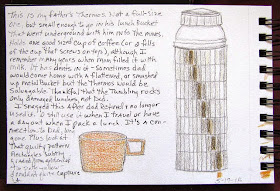 This is my father's Thermos. Not a full-size
one, but small enough to go in his lunch bucket
That went underground with him into the mines.
Holds one good sized cup of coffee (or 2 fills
of the cup that screws on top), although I
remember many years when mom filled it with
milk. It has dents in it. Sometimes dad
would come home with a flattened or smashed
up metal Bucket but the Thermos would be
Salvageable. Thankful that the Tumbling rocks
only damaged lunches, not Dad.
I snagged this after dad Retired & no longer
used it. I still use it when I travel or have
a day out when I pack a lunch. It's a con-
nection to Dad, long
gone. Plus look at
That quilty pattern
capture
5-19-16